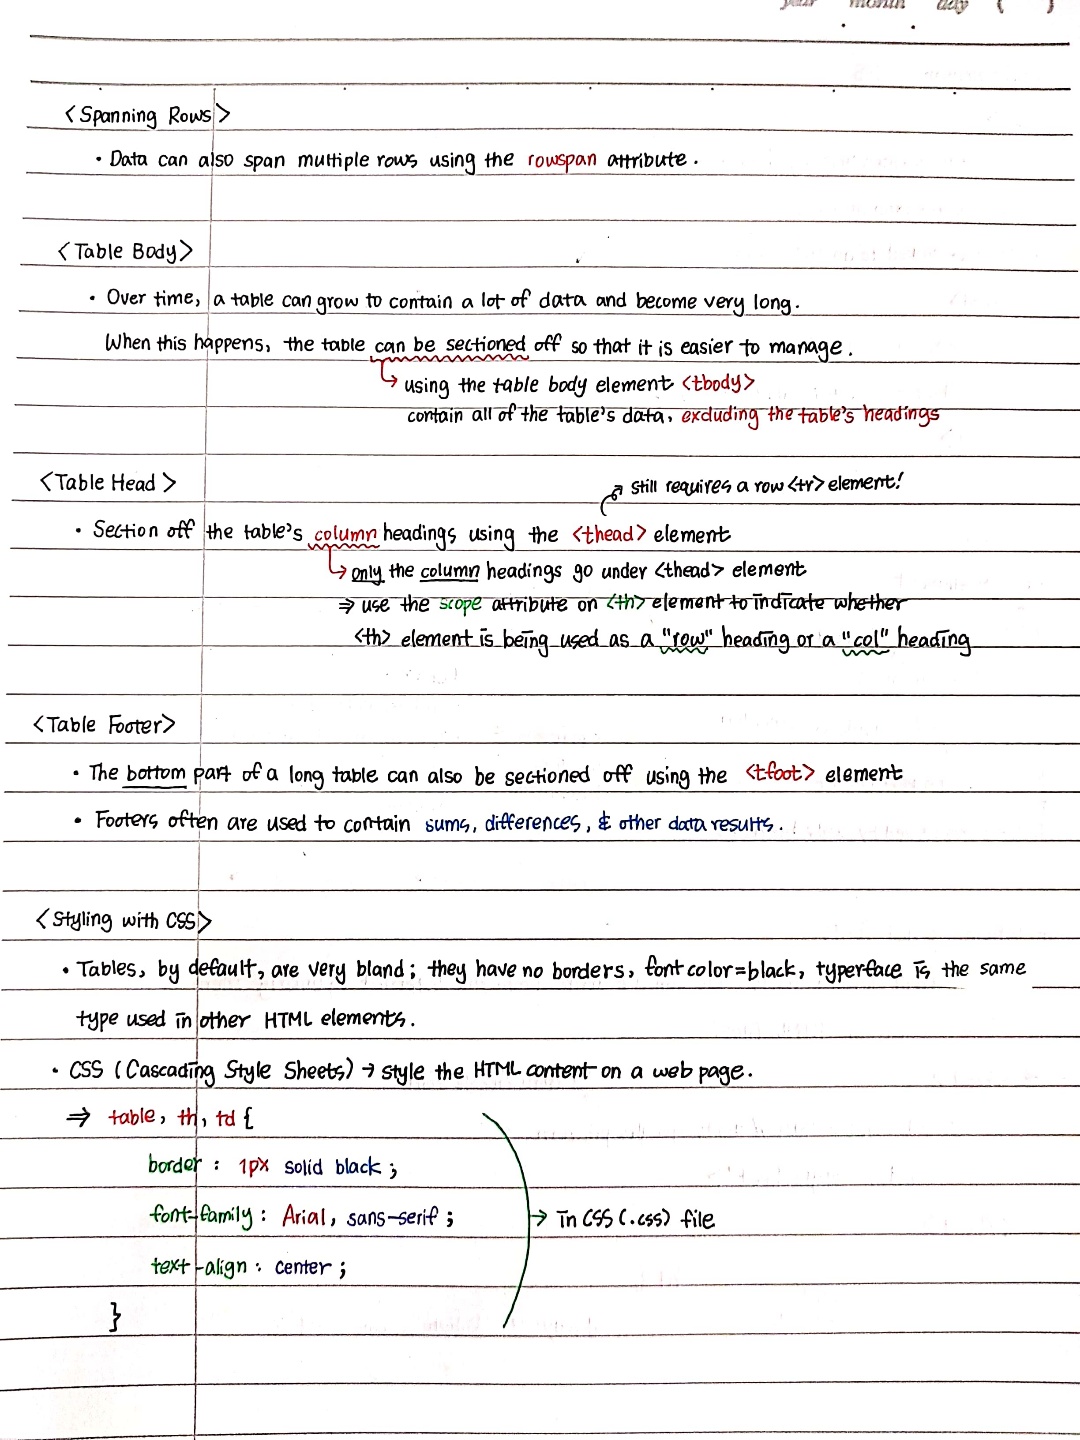 year month day ( )
<Spanning Rows>
• Data can also span multiple rows using the rowspan attribute.
<Table Body>
• Over time, a table can grow to contain a lot of data and become very long.
When this happens, the table can be sectioned off so that it is easier to manage.
↳ using the table body element <tbody>
contain all of the table's data, excluding the table's headings
<Table Head>
↗ still requires a row <tr> element!
• Section off the table's column headings using the <thead> element
↳ only the column headings go under <thead> element
⇒ use the scope attribute on <th> element to indicate whether
<th> element is being used as a "row" heading or a "col" heading
<Table Footer>
• The bottom part of a long table can also be sectioned off using the <tfoot> element
• Footers often are used to contain sums, differences, & other data results.
<Styling with CSS>
• Tables, by default, are very bland; they have no borders, font color=black, typerface is the same
type used in other HTML elements.
• CSS (Cascading Style Sheets) → style the HTML content on a web page.
⇒ table, th, td {
border : 1px solid black ;
font-family : Arial, sans-serif ;
→ in CSS (.css) file
text-align : center ;
}